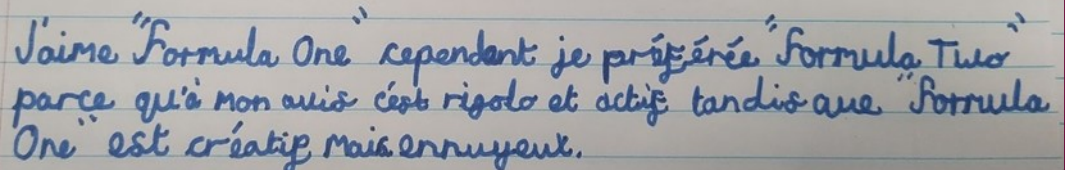 J'aime "Formula One" cependant je préférée "Formula Two"
parce qu'à mon avis c'est rigolo et actif tandis que "Formula
One" est créatif mais ennuyeux.